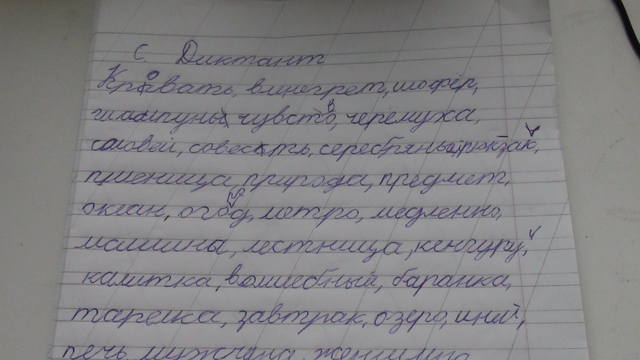 С. Диктант
Кровать, винегрет, шофёр,
шампунь, чувство, черемуха,
соловей, совесть, серебряный, рюкзак,
пшеница, природа, предмет,
океан, огород, метро, медленно,
машина, лестница, кенгуру,
калитка, волшебный, баранка,
тарелка, завтрак, озеро, иней,
печь, мужчина, женщина